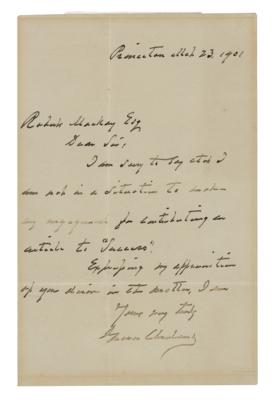 Princeton Mch 23. 1901
Robert Mackay Esq
Dear Sir;
I am sorry to say that I
am not in a situation to make
any engagements for contributing an
article to "Success".
Expressing my appreciation
of your desire in the matter, I am
Yours very truly
Grover Cleveland